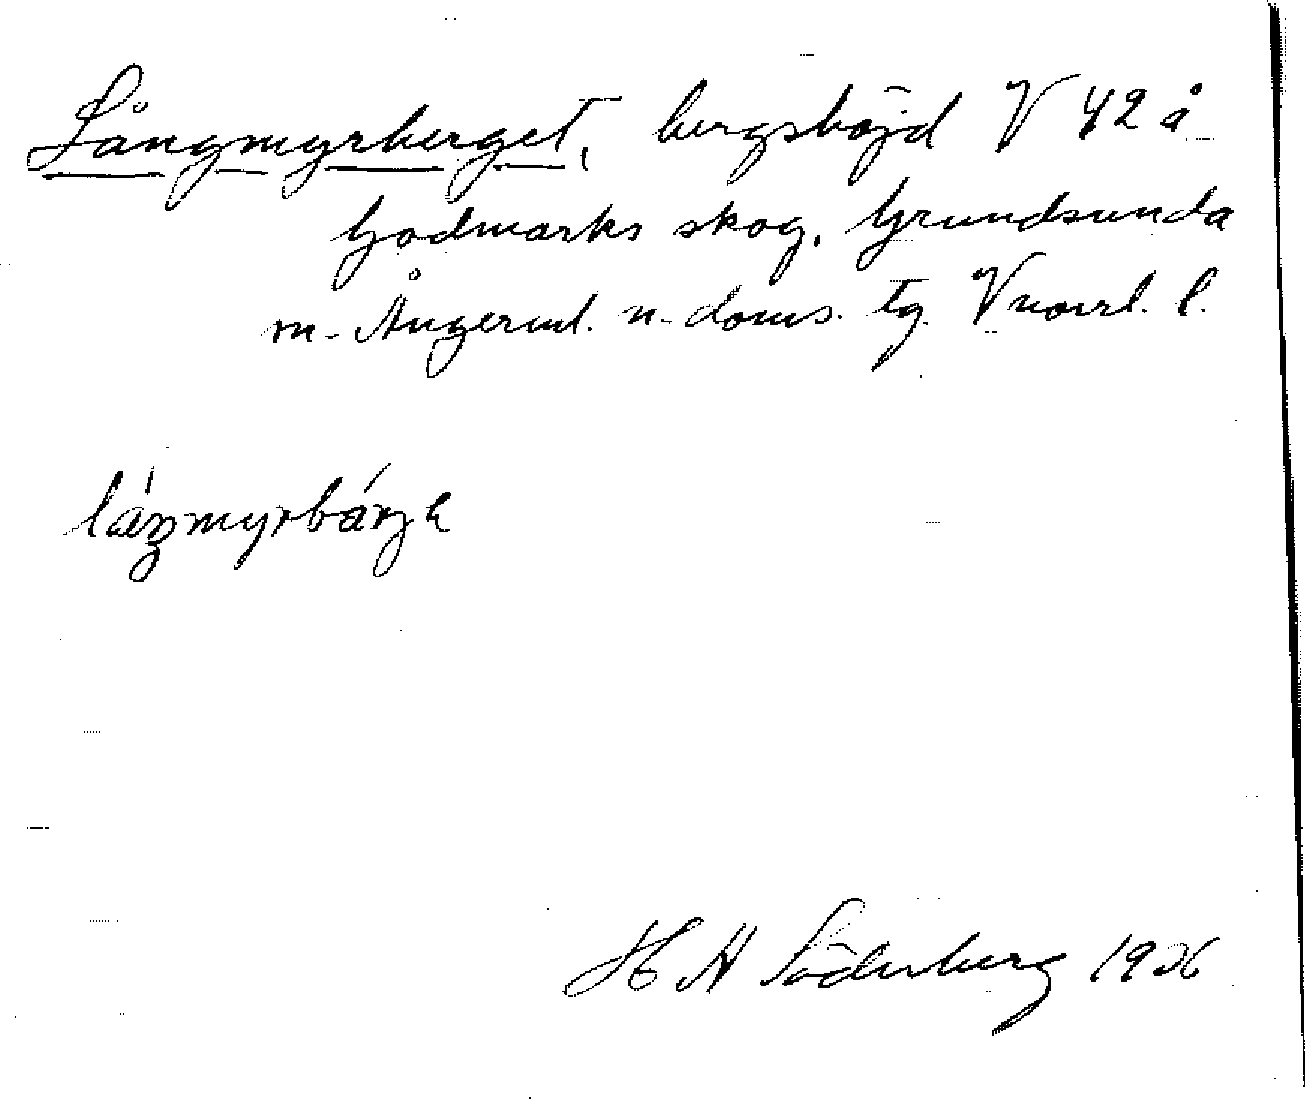 Långmyrberget, bergshöjd V 42 å
Godmarks skog, Grundsunda
sn. Ångerml. n. doms. tg. Vnorrl. l.
lǻŋmyrbárjɛ
H A Söderberg 1926